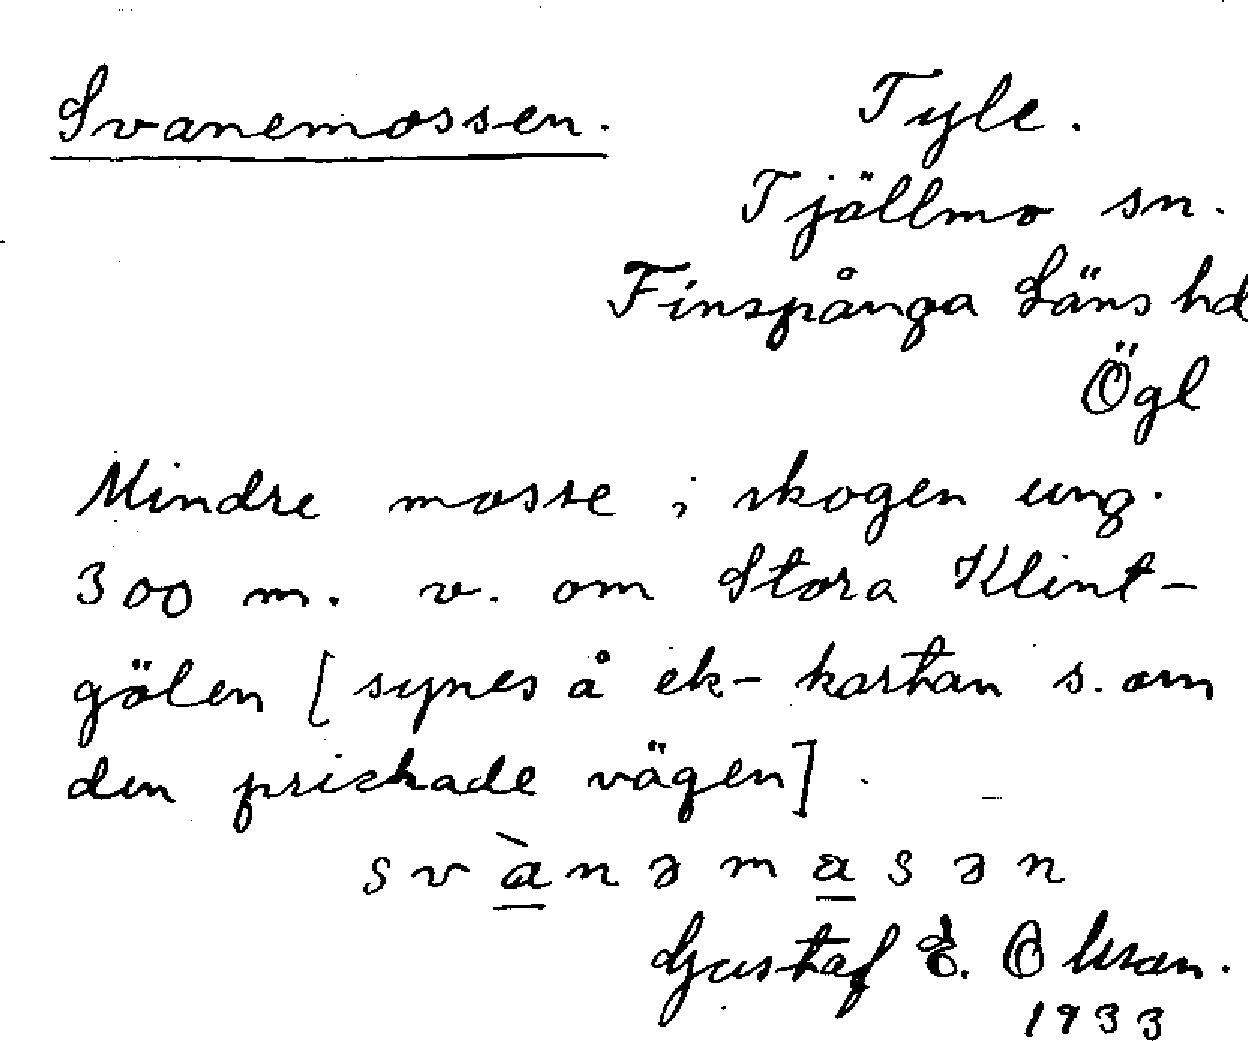 Svanemossen.
Tyle.
Tjällmo sn.
Finspånga Läns hd
Ögl
Mindre mosse i skogen ung.
300 m. v. om Stora Klint-
gölen [synes å ek-kartan s. om
den prickade vägen].
svànəmasən
Gustaf E. Olsson.
1933